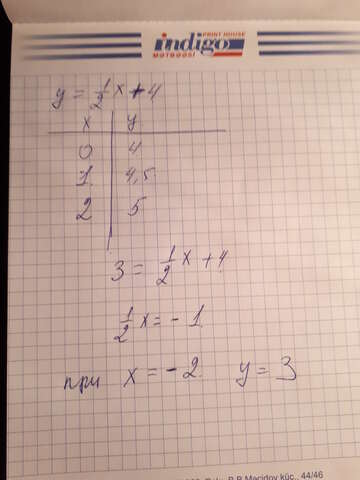 PRINT HOUSE
indigo
MƏTBƏƏSİ
y = 1/2 x + 4
x | y
0 | 4
1 | 4,5
2 | 5
3 = 1/2 x + 4
1/2 x = - 1
при x = - 2. y = 3
küç., 44/46